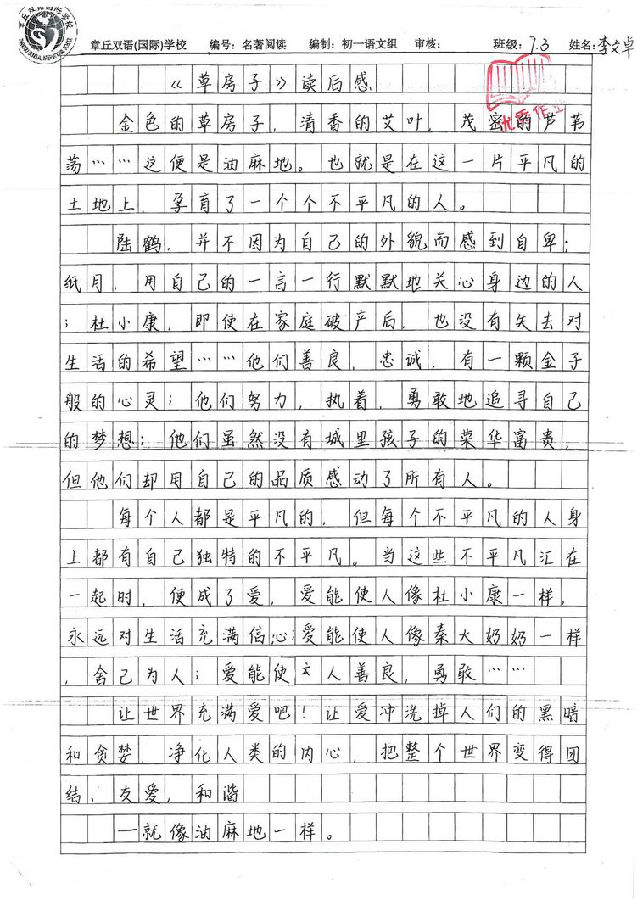 章丘双语(国际)学校 编号: 名著阅读 编制: 初一语文组 审核: 班级: 7.3 姓名: 李文卓
《草房子》读后感
优秀作业
金色的草房子，清香的艾叶，茂密的芦苇
荡……这便是油麻地。也就是在这一片平凡的
土地上，孕育了一个个不平凡的人。
陆鹤，并不因为自己的外貌而感到自卑；
纸月，用自己的一言一行默默地关心身边的人
；杜小康，即使在家庭破产后，也没有失去对
生活的希望……他们善良，忠诚，有一颗金子
般的心灵；他们努力，执着，勇敢地追寻自己
的梦想；他们虽然没有城里孩子的荣华富贵，
但他们却用自己的品质感动了所有人。
每个人都是平凡的，但每个不平凡的人身
上都有自己独特的不平凡。当这些不平凡汇在
一起时，便成了爱，爱能使人像杜小康一样，
永远对生活充满信心；爱能使人像秦大奶奶一样
，舍己为人；爱能使人善良，勇敢……
让世界充满爱吧！让爱冲洗掉人们的黑暗
和贪婪，净化人类的内心，把整个世界变得团
结，友爱，和谐
—就像油麻地一样。